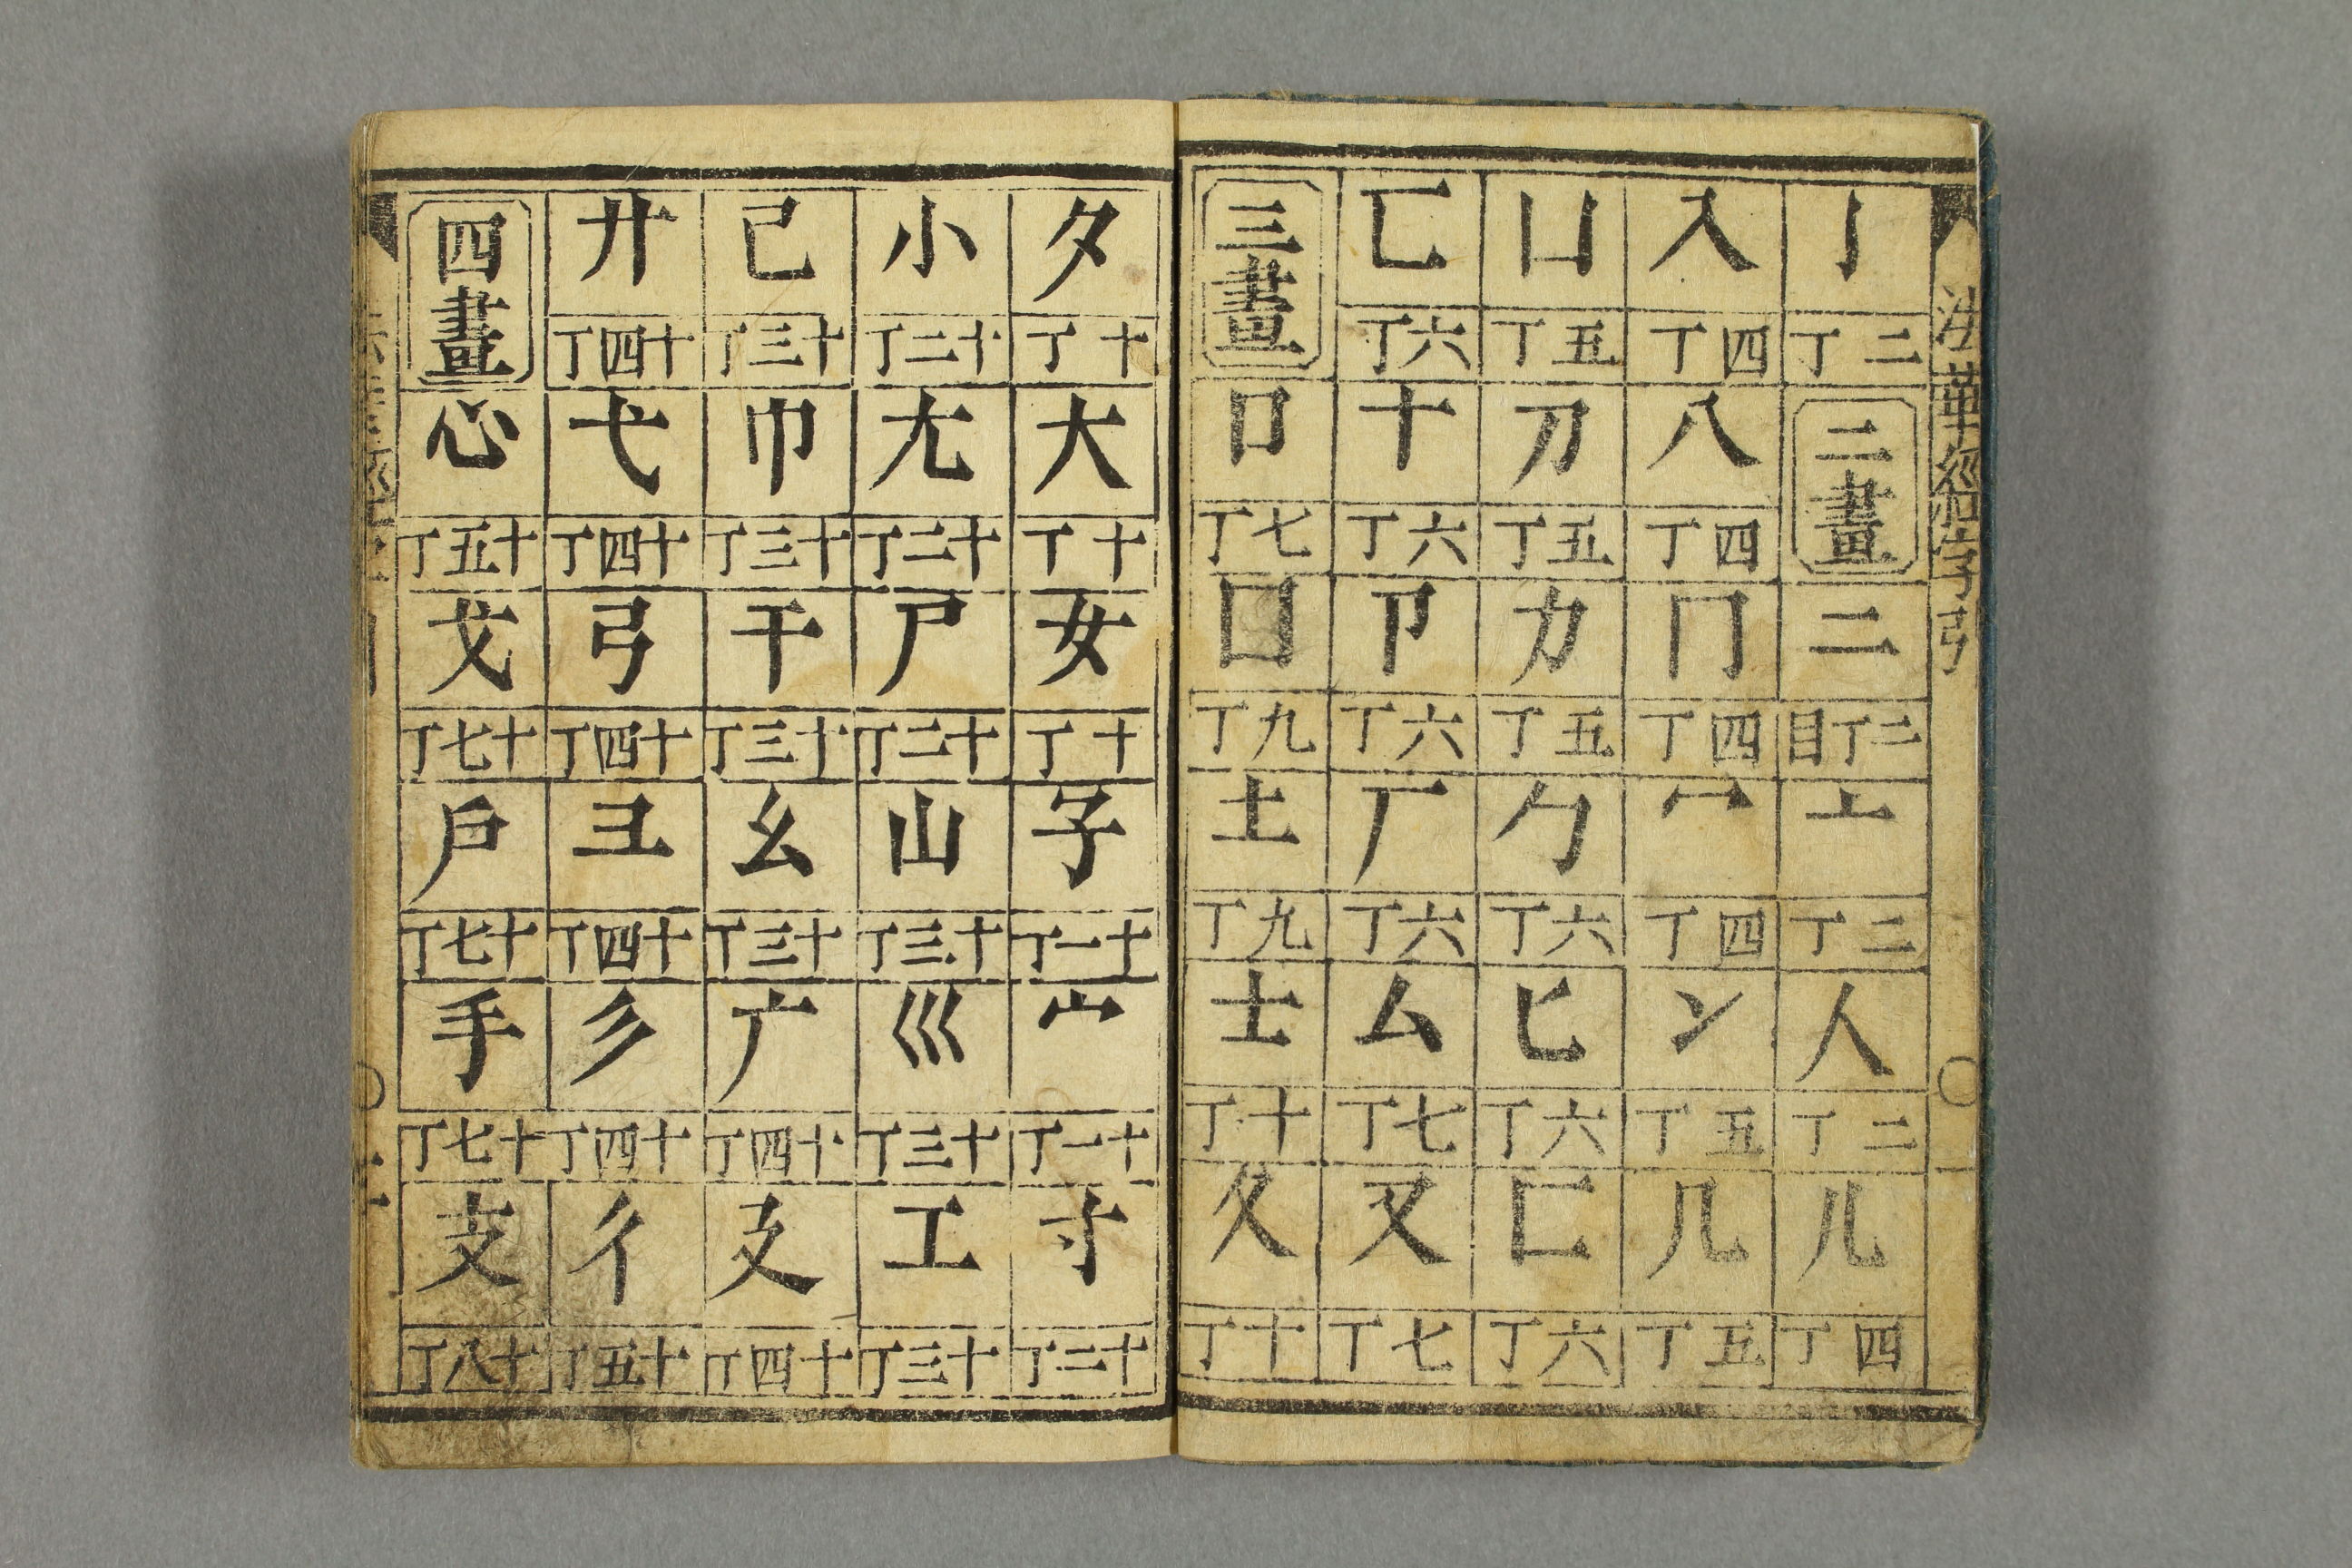 法華經字引
亅 二丁 二畫 二 二丁目 亠 二丁 人 二丁 儿 四丁
入 四丁 八 四丁 冂 四丁 冖 四丁 冫 五丁 几 五丁
凵 五丁 刀 五丁 力 五丁 勹 六丁 匕 六丁 匚 六丁
匸 六丁 十 六丁 卩 六丁 厂 六丁 厶 七丁 又 七丁
三畫 口 七丁 囗 九丁 土 九丁 士 十丁 夂 十丁
夕 十丁 大 十丁 女 十丁 子 十一丁 宀 十一丁 寸 十二丁
小 十二丁 尢 十二丁 尸 十二丁 山 十三丁 巛 十三丁 工 十三丁
己 十三丁 巾 十三丁 干 十三丁 幺 十三丁 广 十四丁 廴 十四丁
廾 十四丁 弋 十四丁 弓 十四丁 彐 十四丁 彡 十四丁 彳 十五丁
四畫 心 十五丁 戈 十七丁 戶 十七丁 手 十七丁 支 十八丁